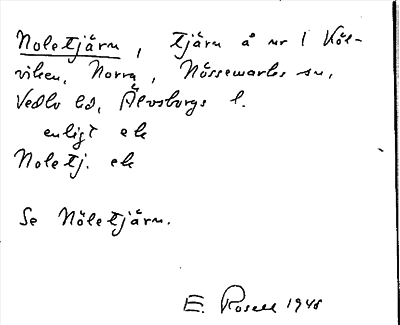 Noletjärn, tjärn å nr 1 Köl-
viken, Norra, Nössemarks sn,
Vedbo hd, Älvsborgs l.
enligt ek
Noletj. ek
Se Nöletjärn.
E. Rosell 1948